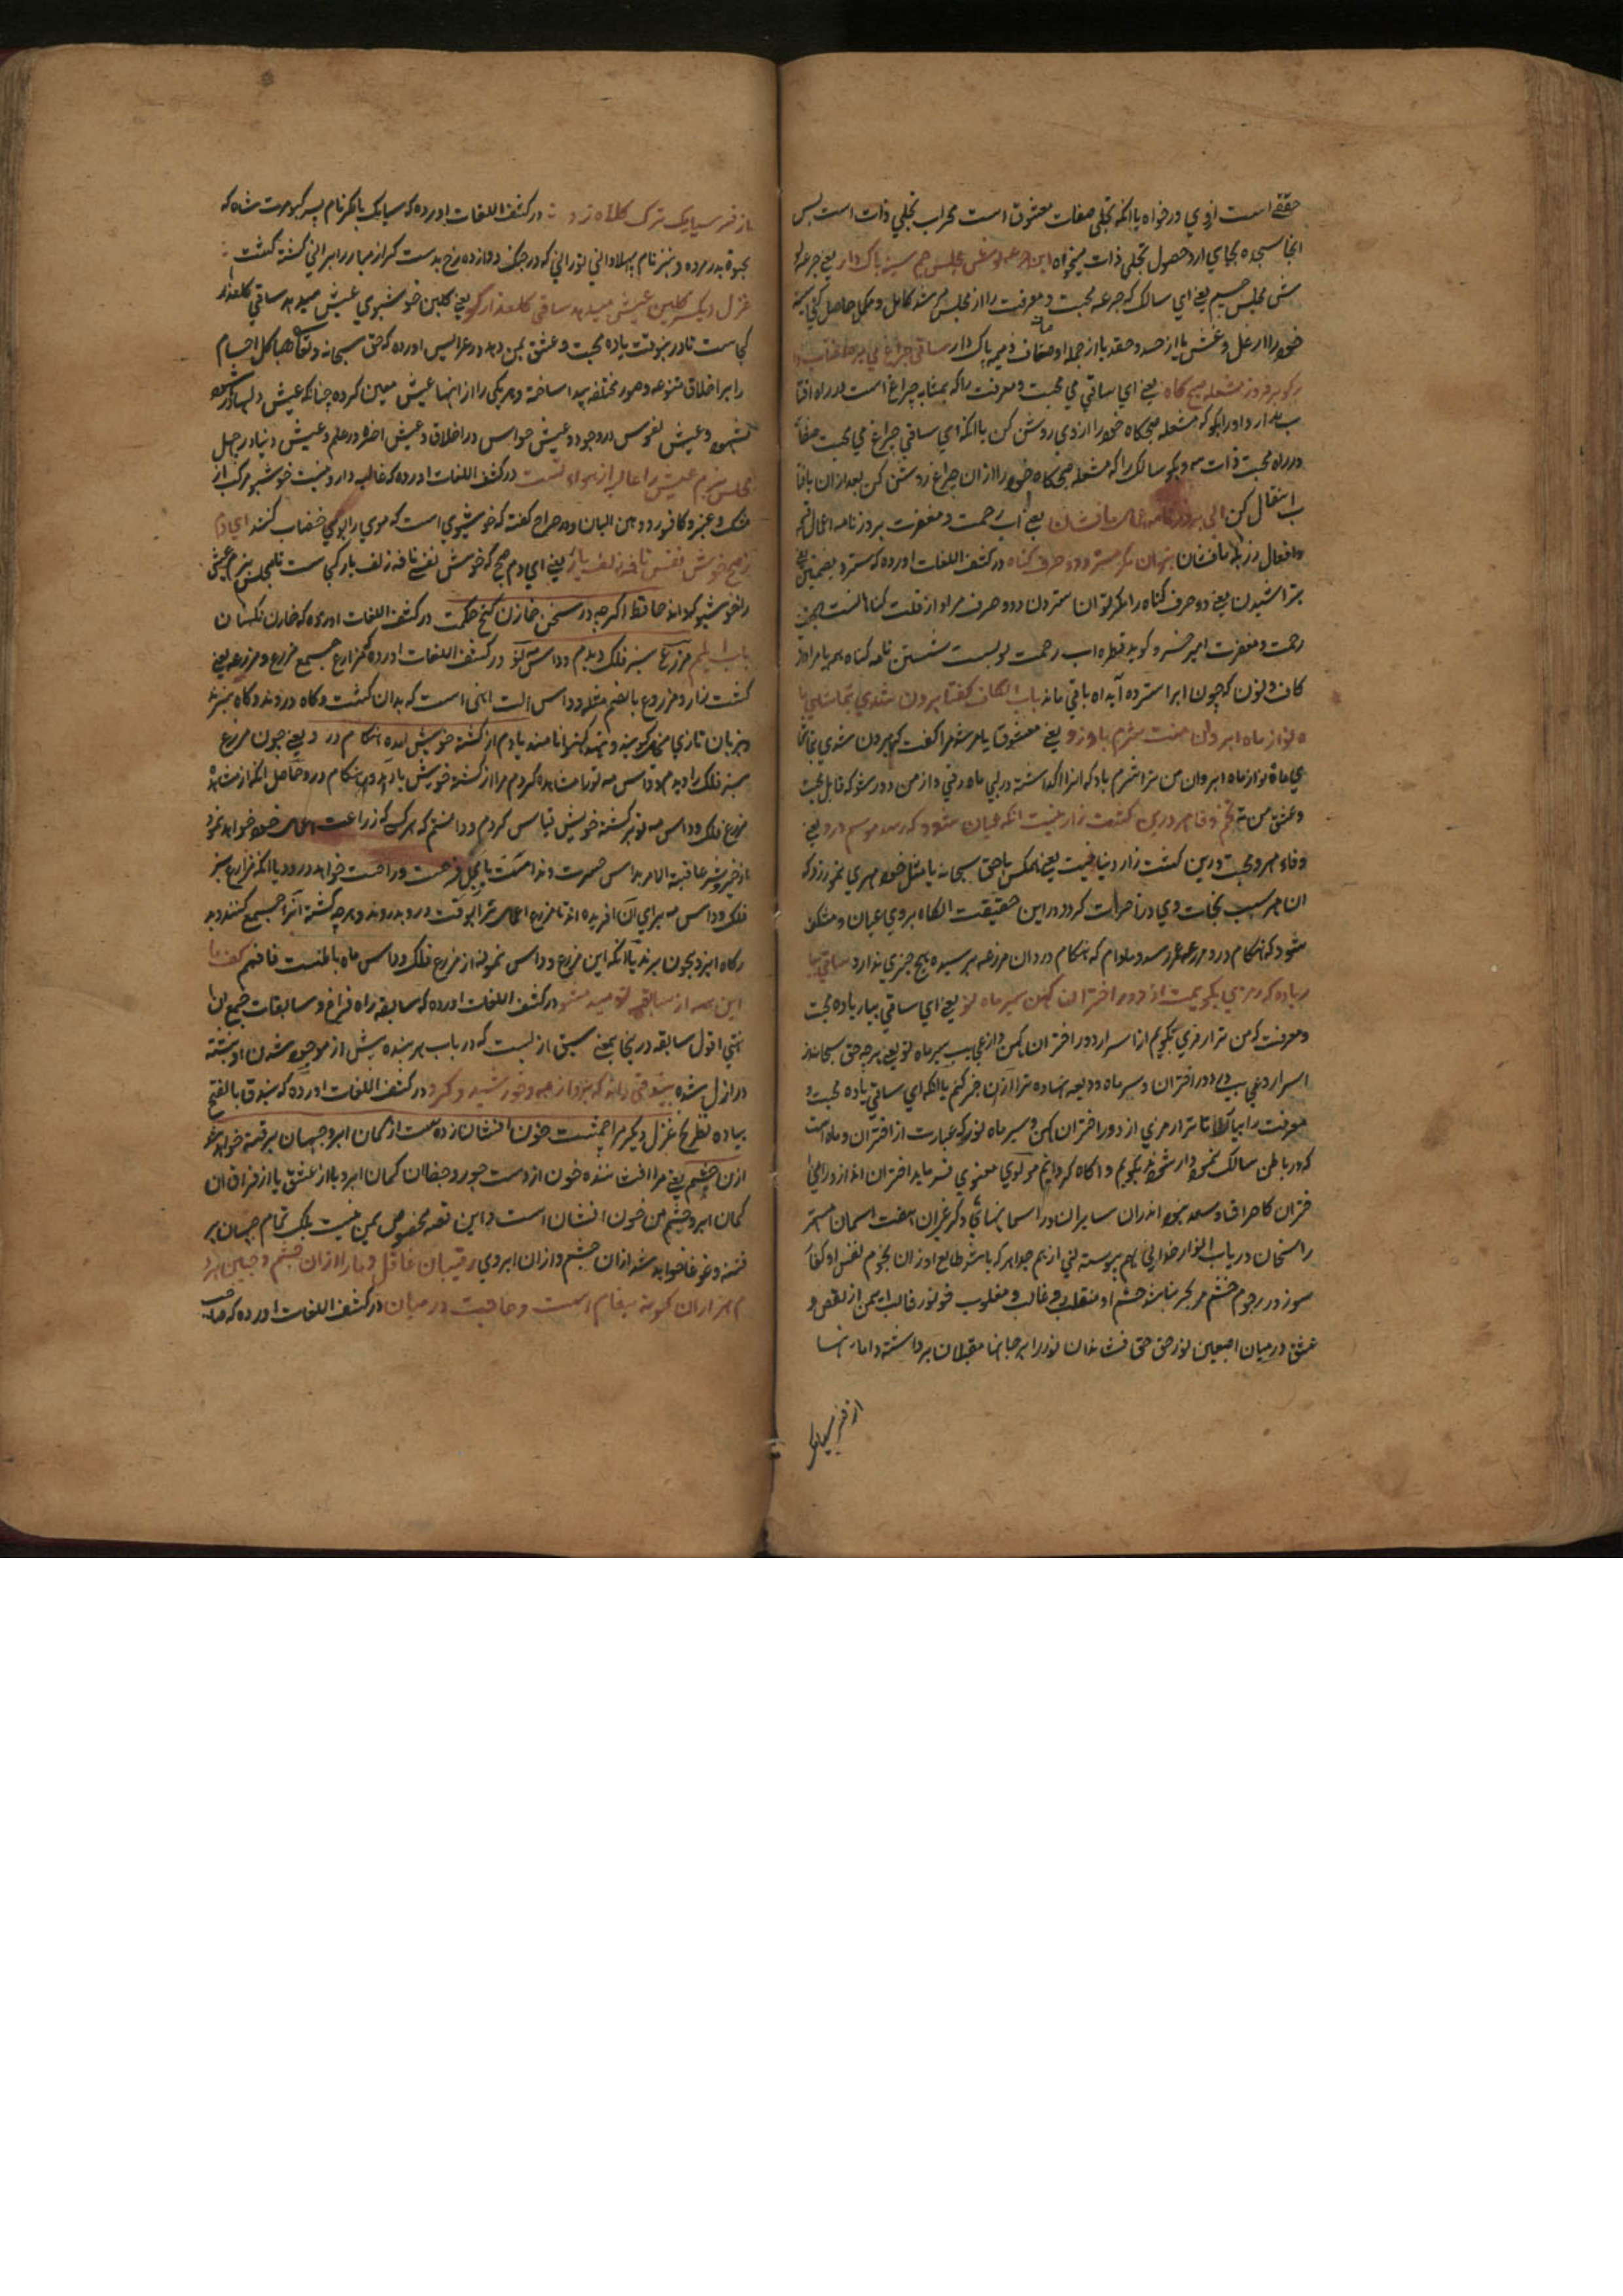 حقیقی است ازوی درخواه یا انکه تجلی صفات معشوق است محراب تجلی ذات است پس
انجا سجده بجای ار و حصول تجلی ذات بخواه این جرعه نوش مجلس جم سینه پاک دار یعنی جرعه نو
ش مجلس جسیم یعنی ای سالک که جرعه محبت و معرفت را از مجلس مرشد کامل و مکمل حاصل کنی سینه
خود را از غل و غش یا از حسد و حقد یا از جمله اوصاف ذمیمه پاک دار ساقی چراغ می بره افتاب دار
کو بر فروز مشعله صبحگاه یعنی ای ساقی می محبت و معرفت را که بمثابه چراغ است در راه افتا
ب بدار و او را بگو که مشعله صبحگاه خود را از وی روشن کن یا انکه ای ساقی چراغ می محبت صفا
در راه محبت ذات نه و بگو سالک را که مشعله صبحگاه خود را از ان چراغ روشن کن بعد از ان بافتا
ب انتقال کن ابی بروزنامه اعمال ما فشان یعنی اب رحمت و مغفرت بروزنامه اعمال قبیحه
و افعال رزیله ما فشان بتوان مگر سترد حروف گناه در کشف اللغات اورده که سترد بضمتین یعنی
بتراشیدن یعنی دو حرف گناه را مگر توان ستردن و دو حرف مراد از قلت گناه است
رحمت و مغفرت امیر خسرو گوید قطره اب رحمت تو بس است شستن نامه گناه همه
کاف و نون که چون ابرا سترده اید اه باقی ماند باب الکاف گفتا برون شدی بتماشای
ه نو از ماه ابروان منت شرم باد رو یعنی معشوق یا مرشد مرا گفت که بیرون شدی بتماشا
ی ماه نو از ماه ابروان من ترا شرم باد که انرا گذاشته در پی ماه رفتی و از من دور شو که قابل محبت
و عشق من نه تخم وفا و مهر درین کشت زار نیست انگه عیان شود که رسد موسم درو یعنی
وفاء مهر و محبت درین کشت زار دنیا نیست یعنی هیچکس با حق سبحانه یا مثل خود مهری نمی ورزد که
ان مهر سبب نجات وی در اخرت گردد و این حقیقت انگاه بروی عیان و منکشف
شود که هنگام درو مزرعه عمر رسد و مادام که هنگام درو ان مزرعه نرسیده هیچ خبری ندارد ساقی بیا
ر باده که رمزی بگویمت از دور اختران کهن سیر ماه نو یعنی ای ساقی بیار باده محبت
و معرفت که من ترا رمزی بگویم از اسرار دور اختران کهن و از عجایب سیر ماه نو یعنی هر چه حق سبحانه از
اسرار و غرایب در دور اختران و سیر ماه ودیعه نهاده ترا از ان خبر کنم یا انکه ای ساقی باده محبت و
معرفت را بیار تا ترا رمزی از دور اختران کهن و سیر ماه نو که عبارت از اختران و ماه است
که در باطن سالک نموده شود بگویم و اگاه گردانم مولوی معنوی فرماید اختران اند از ورای ا
ختران کاحتراق و سعد نبود اندران سایران در اسمانهای دگر غیر این هفت اسمان مشتهر
راسخان در تاب انوار خدا نی بهم پیوسته نی از هم جدا هر که باشد طالع او زان نجوم نفس او کفا
سوزد در رجوم خشم مریخی نباشد خشم او منقلب رو غالب و مغلوب خو نور غالب ایمن از نقص و
غسق درمیان اصبعین نور حق حق فشاند ان نور را بر جانها مقبلان برداشته دامانها
از فر سیامک
باز فر سیامک ترک کلاه زو در کشف اللغات اورده که سیامک با کاف نام پسر کیومرث شاه که
بحیوة پدر مرده و نیز نام پهلوانی تورانی که در جنگ دوازده رخ بدست گرازه مبارز ایرانی کشته گشت
غزل دیگر گلبن عیش میدمد ساقی گلعذار کو یعنی گلبن خوشبوی عیش میدمد ساقی گلعذار
کجاست تا در نوبت باده محبت و عشق بمن دهد و در عرایس اورده که حق سبحانه و تعالی هیاکل اجسام
را بر اخلاق متنوعه و صور مختلفه پیدا ساخته و هر یکی را از انها عیش معین کرده چنانکه عیش دلها در
شهود و عیش نفوس در وجود و عیش حواس در اخلاق و عیش اخرة در علم و عیش دنیا در جهل
مجلس بزم عیش را غالیه مراد نیست در کشف اللغات اورده که غالیه داروئیست خوشبو مرکب از
مشک و عنبر و کافور و دهن البان و در صراح گفته که خوشبوی است که موی را بوی خضاب کنند ای دم
صبح خوش نفس نافه زلف یار کو یعنی ای دم صبح که خوش نفسی نافه زلف یار کجاست تا مجلس بزم عیش
را خوشبو گرداند حافظ اگرچه در سخن خازن گنج حکمت در کشف اللغات اورده که خازن نگهبان
مزرع سبز فلک دیدم و داس مه نو در کشف اللغات اورده که مزارع جمیع مزرع و مزرعه یعنی
کشت زار و مزروع بالضم مثله و داس الت اهنی است که بدان کشت و گاه دروند و گاه هیزم
و بزبان تازی منجل گویند یادم از کشته خویش امد و هنگام درو یعنی چون مزرع
سبز فلک را دیدم و داس مه نو را مشاهده کردم مرا از کشته خویش یاد امد و هنگام درو حاصل انکه از مشاهده
مزرع فلک و داس مه نو بر کشته خویش قیاس کردم و دانستم که هر کس که زراعت اعمال خود خواهد نمود
از خیر و شر عاقبة الامر بداس حسرت و ندامت یا بمنجل فرحت و راحت خواهد درود یا انکه مزارع سبز
فلک و داس مه برای ان افریده اند تا مزرع اعمال ترا بوقت درو بدروند و هر چه کشته انرا جمیع کنند و بد
رگاه ایزد بیچون برند یا انکه این مزرع و داس نمونه از مزرع فلک و داس ماه باطنست فافهم گفت با
این همه از سابقه نومید مشو در کشف اللغات اورده که سابقه راه فراخ و سابقات جمع ان
انتهی اقول سابقه در ینجا بمعنی سبق از لیست که در باب هر بنده پیش از موجود شدن او نبشته
در ازل شده بیذقی راند که برد از مه و خورشید گرو در کشف اللغات اورده که بیذق بالفتح
پیاده شطرنج غزل دیگر مرا چشمیست خون افشان ز دست ان کمان ابرو جهان پر فتنه خواهد شد
ازان چشم یعنی مرا افشاننده خون از دست جور و جفا ان کمان ابرو یا از عشق یا از فراق ان
کمان ابرو چشم من خون افشان است و این قصه مخصوص بمن نیست بلکه تمام جهان پر
فتنه و غوغا خواهد شد ازان چشم و ازان ابروی رقیبان غافل و ما را ازان چشم و جبین هرد
م هزاران گونه پیغام است و حاجب درمیان در کشف اللغات اورده که حاجب